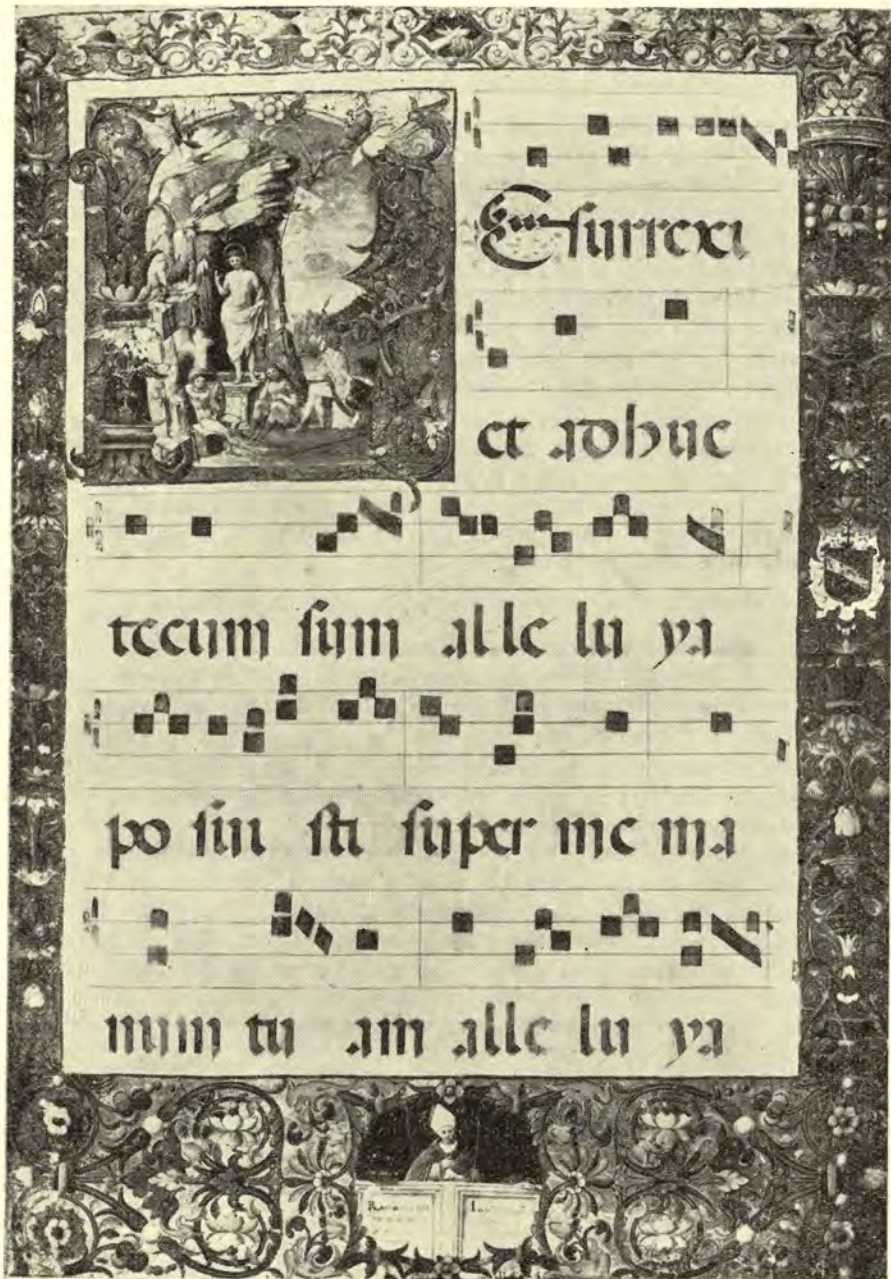 REsurrexi
et adhuc
tecum sum al le lu ya
po sui sti super me ma
num tu am alle lu ya